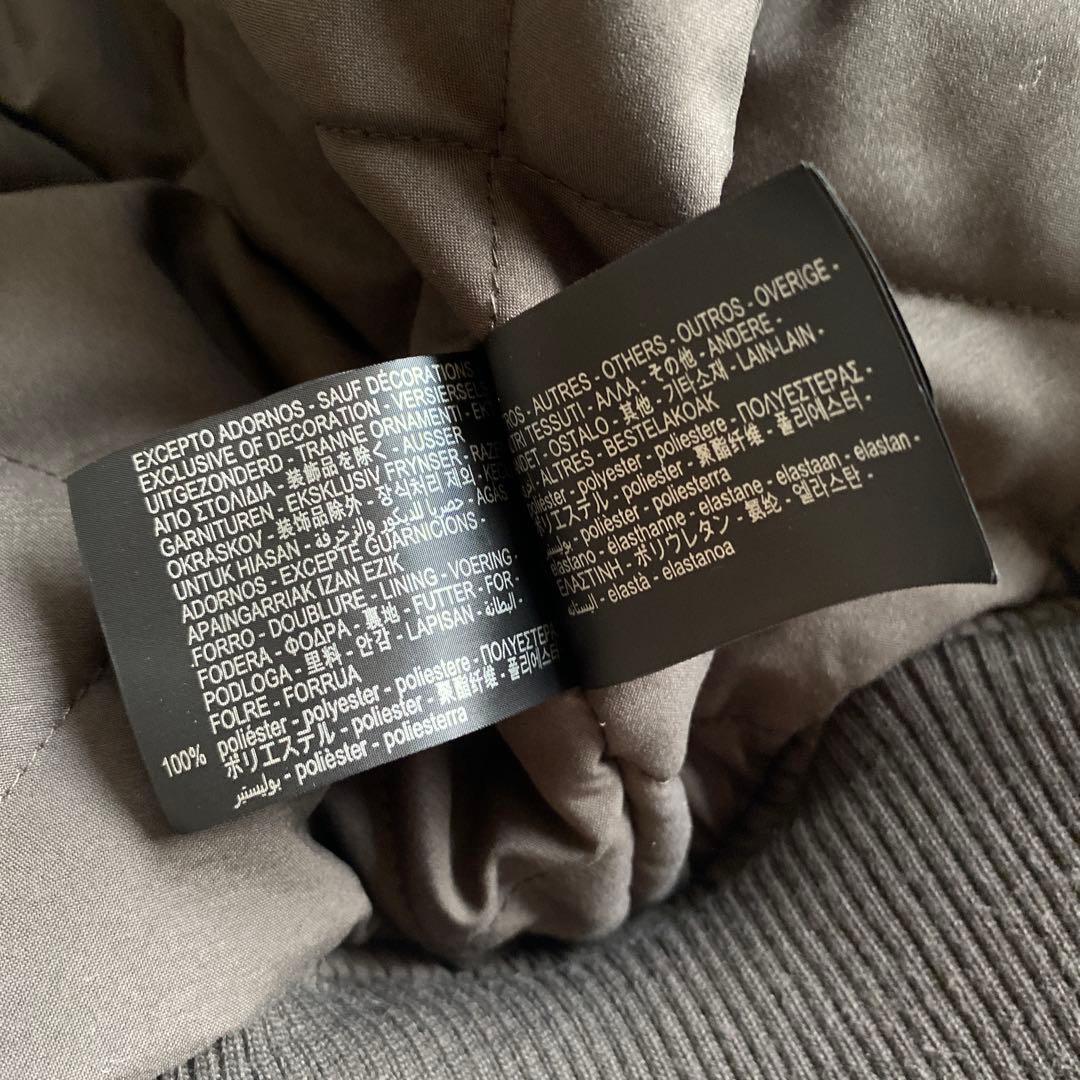 EXCEPTO ADORNOS - SAUF DÉCORATIONS
EXCLUSIVE OF DECORATION - VERSIERSELS
UITGEZONDERD - TRANNE ORNAMENTI - EKT
ΑΠΟ ΣΤΟΛΙΔΙΑ - 装飾品を除く - AUSSER
GARNITUREN - EKSKLUSIV FRYNSER - RAZEN
OKRASKOV - 装饰品除外 - 장식처리 제외 - KEC
UNTUK HIASAN - حصريا للديكور والزخرفة - AGAS
ADORNOS - EXCEPTE GUARNICIONS -
APAINGARRIAK IZAN EZIK
FORRO - DOUBLURE - LINING - VOERING -
FODERA - ΦΟΔΡΑ - 裏地 - FUTTER - FOR -
PODLOGA - 里料 - 안감 - LAPISAN - البطانة -
FOLRE - FORRUA
100% poliéster - polyester - poliestere - ΠΟΛΥΕΣΤΕΡΑ
ポリエステル - poliester - 聚酯纤维 - 폴리에스터
بوليستير - polièster - poliesterra
ROS - AUTRES - OTHERS - OUTROS - OVERIGE -
TRI TESSUTI - ΑΛΛΑ - その他 - ANDERE -
NDET - OSTALO - 其他 - 기타소재 - LAIN-LAIN -
ALTRES - BESTELAKOAK
poliéster - polyester - poliestere - ΠΟΛΥΕΣΤΕΡΑΣ -
ポリエステル - poliester - 聚酯纤维 - 폴리에스터 -
بوليستير - polièster - poliesterra
elastano - élasthanne - elastane - elastaan - elastan -
ΕΛΑΣΤΙΝΗ - ポリウレタン - 氨纶 - 엘라스탄 -
اليستان - elastà - elastanoa